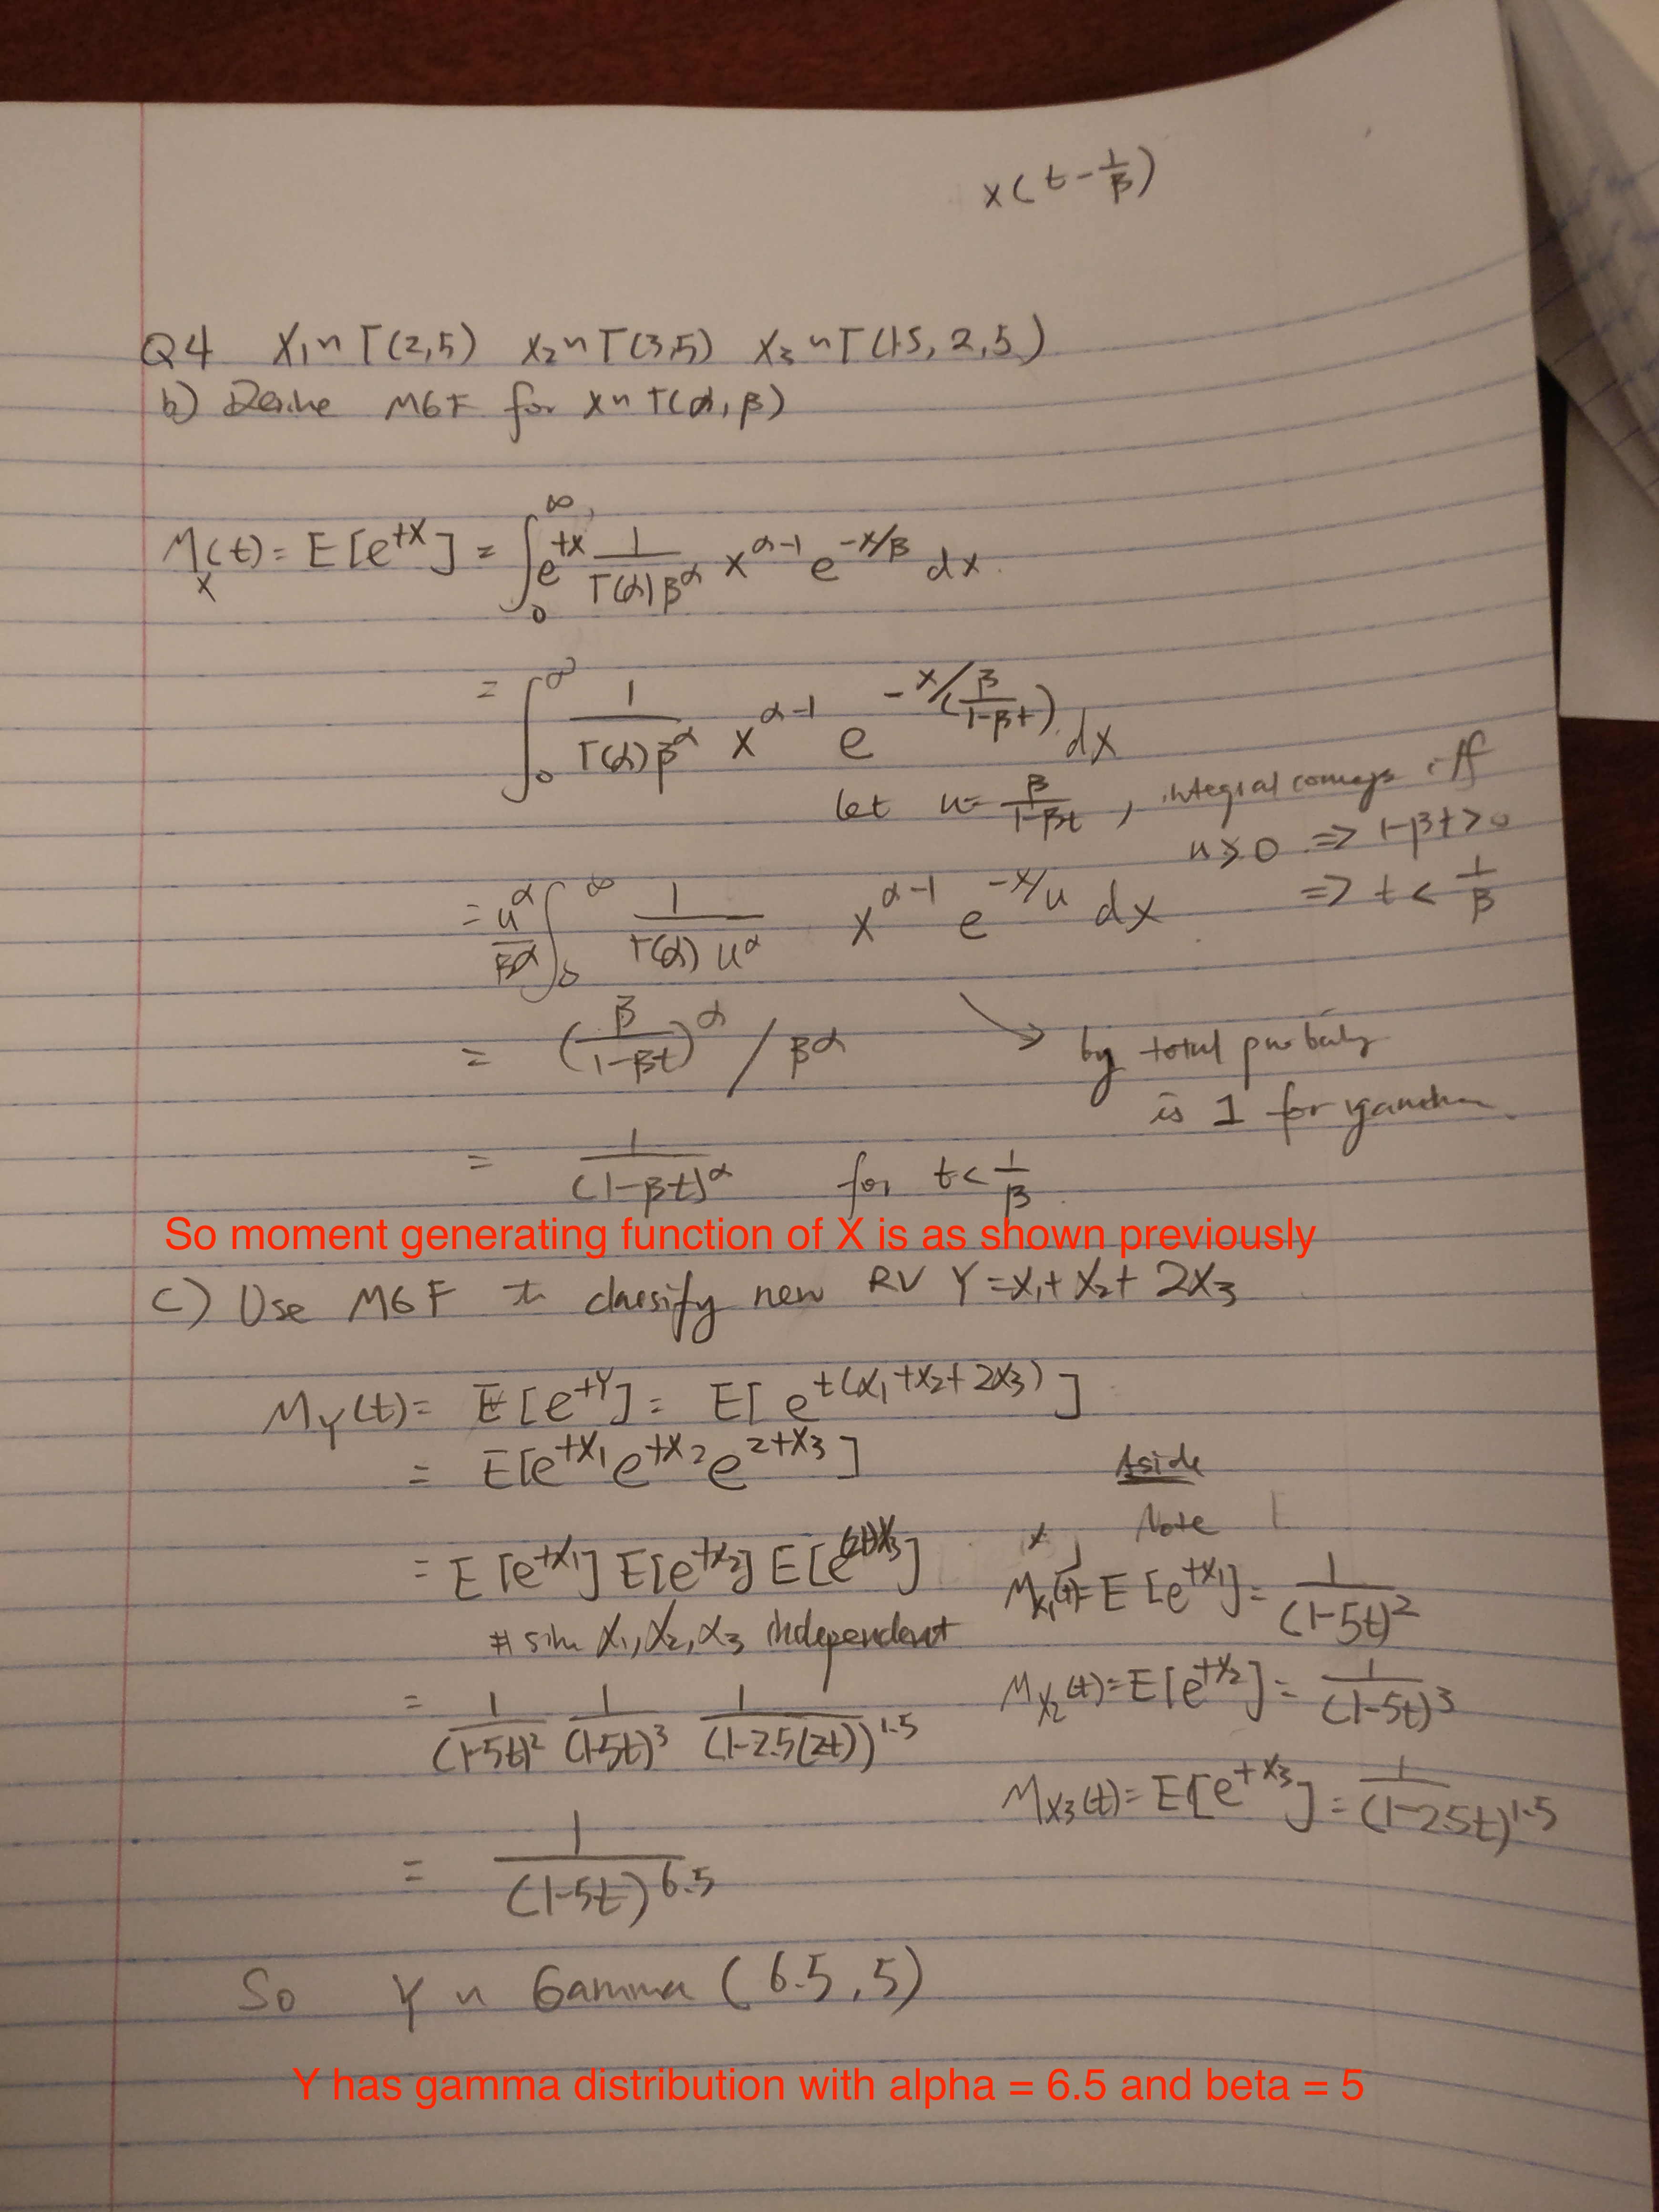 x(t-1/β)
Q4 X₁~Γ(2,5) X₂~Γ(3,5) X₃~Γ(1.5, 2.5)
b) Derive MGF for X~Γ(α, β)
M_X(t) = E[e^{tX}] = ∫₀^∞ e^{tx} 1/(Γ(α)β^α) x^{α-1} e^{-x/β} dx.
= ∫₀^∞ 1/(Γ(α)β^α) x^{α-1} e^{-x/(β/(1-βt))} dx
let u = β/(1-βt), integral converges iff
u>0 => 1-βt>0
=> t < 1/β
= u^α/β^α ∫₀^∞ 1/(Γ(α) u^α) x^{α-1} e^{-x/u} dx
= (β/(1-βt))^α / β^α
by total probability
is 1 for
= 1/(1-βt)^α for t < 1/β
So moment generating function of X is as shown previously
c) Use MGF to classify new RV Y = X₁+X₂+2X₃
M_Y(t) = E[e^{tY}] = E[e^{t(X₁+X₂+2X₃)}]
= E[e^{tX₁}e^{tX₂}e^{2tX₃}]
= E[e^{tX₁}] E[e^{tX₂}] E[e^{(2t)X₃}]
# since X₁, X₂, X₃ independent
= 1/(1-5t)² 1/(1-5t)³ 1/(1-2.5(2t))^{1.5}
= 1/(1-5t)^{6.5}
Aside
Note
M_{X₁}(t) = E[e^{tX₁}] = 1/(1-5t)²
M_{X₂}(t) = E[e^{tX₂}] = 1/(1-5t)³
M_{X₃}(t) = E[e^{tX₃}] = 1/(1-2.5t)^{1.5}
So Y ~ Gamma (6.5, 5)
Y has gamma distribution with alpha = 6.5 and beta = 5